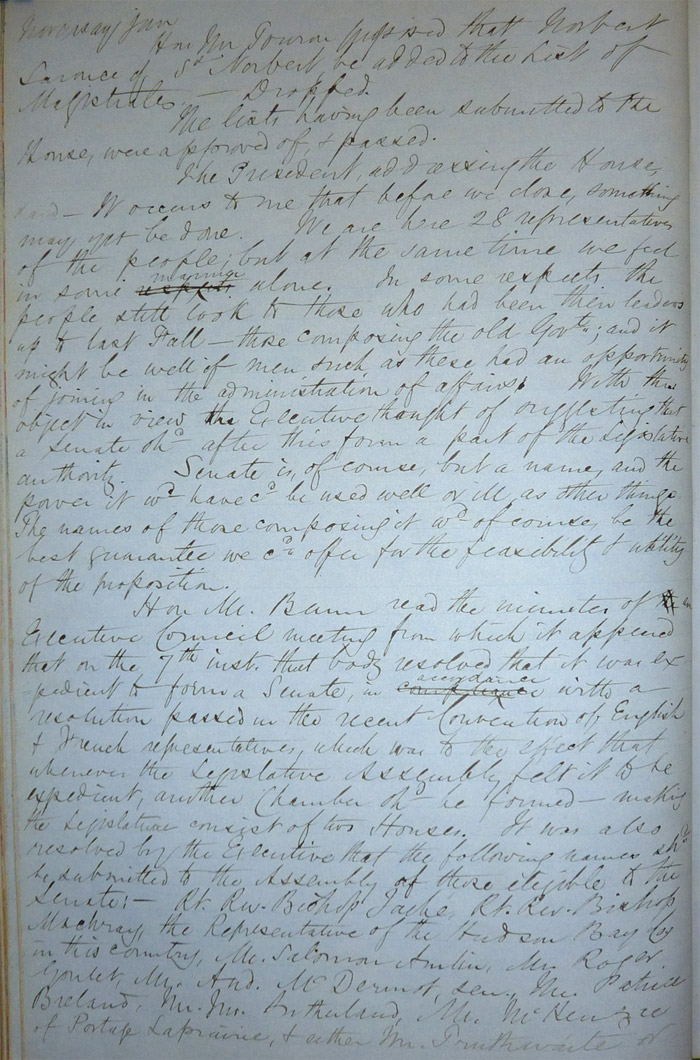 Hon Mr. Touron proposed that Norbert
Laronce of St Norbert be added to the List of
Magistrates — Dropped.
The lists having been submitted to the
House, were approved of, & passed.
The President, addressing the House,
said — It occurs to me that before we close, something
may yet be done. We are here 28 representatives
of the people; but at the same time we feel
in some manner alone. In some respects the
people still look to those who had been their leaders
up to last Fall — those composing the old Govtn; and it
might be well if men such as these had an opportunity
of joining in the administration of affairs. With this
object in view the Executive thought of suggesting that
a Senate shd after this form a part of the Legislative
authority. Senate is, of course, but a name, and the
power it wd have cd be used well or ill, as other things.
The names of those composing it wd of course, be the
best guarantee we cd offer for the feasibility & utility
of the proposition.
Hon Mr. Bunn read the minutes of an
Executive Council meeting from which it appeared
that on the 7th inst. that body resolved that it was ex
-pedient to form a Senate, in accordance with a
resolution passed in the recent Convention of English
& French representatives, which was to the effect that
whenever the Legislative Assembly felt it to be
expedient, another Chamber shd be formed — making
the Legislature consist of two Houses. It was also
resolved by the Executive that the following names shd
be submitted to the Assembly of those eligible to the
Senate: — Rt. Rev. Bishop Tache, Rt. Rev. Bishop
Machray, the Representative of the Hudson Bay Co
in this country, Mr. Salomon Amlin, Mr. Roger
Goulet, Mr. And. McDermot, sen., Mr. Patrice
Breland, Mr. Jno. Sutherland, Mr. McKenzie
of Portage Laprairie, & either Mr. Truthwaite or